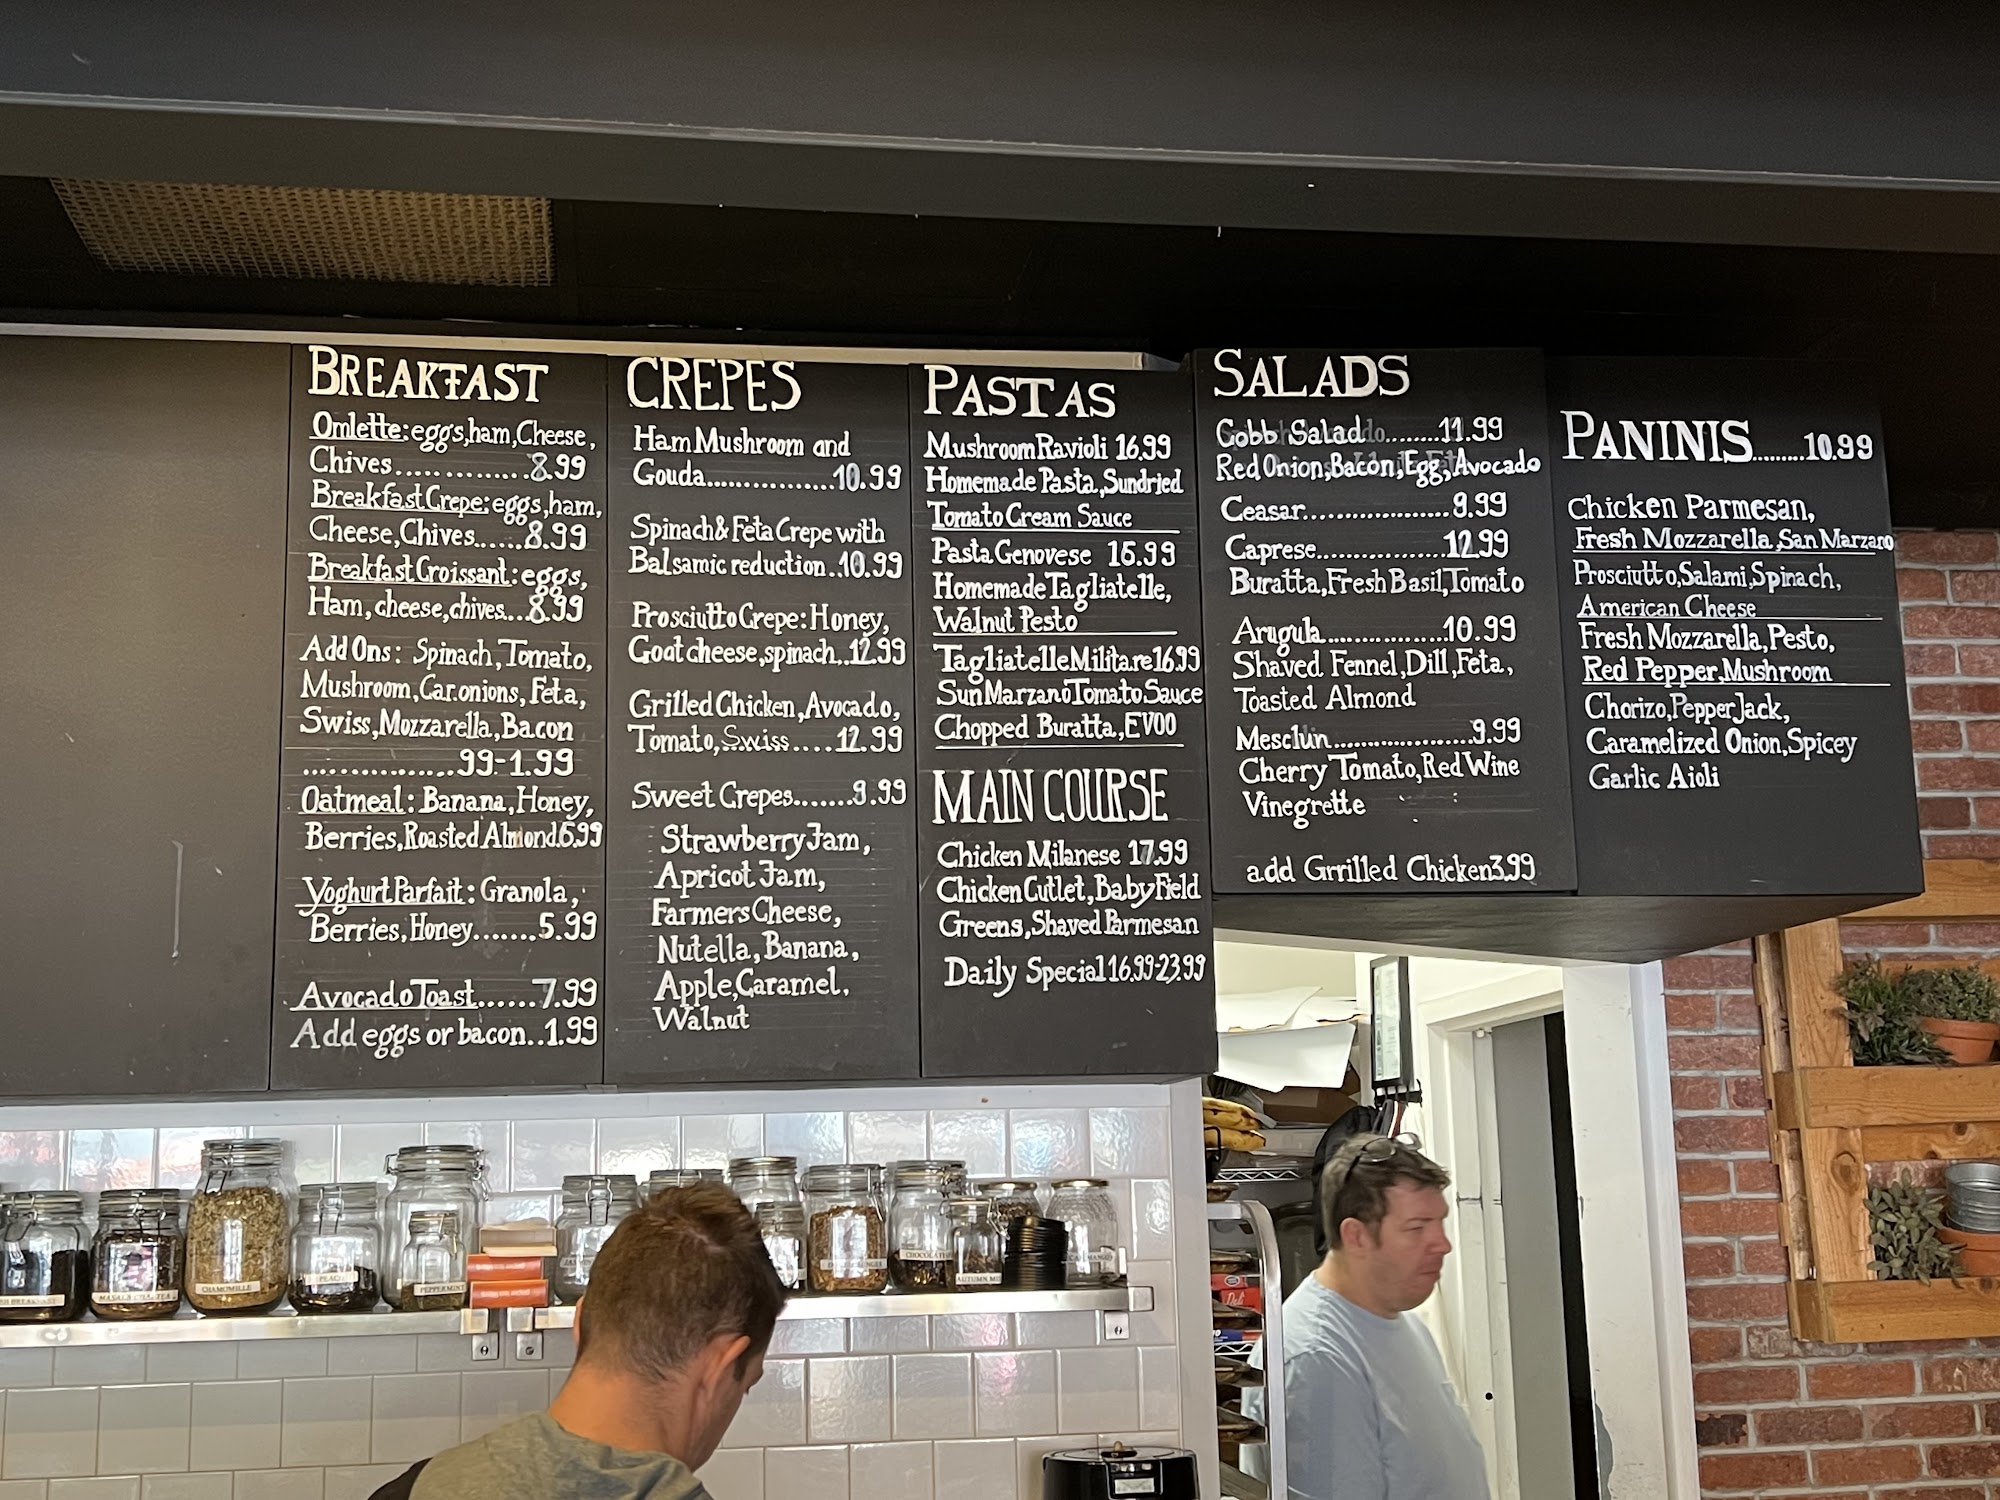 BREAKFAST
Omlette: eggs, ham, Cheese,
Chives..............8.99
Breakfast Crepe: eggs, ham,
Cheese, Chives......8.99
Breakfast Croissant: eggs,
Ham, cheese, chives...8.99
Add Ons: Spinach, Tomato,
Mushroom, Car.onions, Feta,
Swiss, Mozzarella, Bacon
................99-1.99
Oatmeal: Banana, Honey,
Berries, Roasted Almond.6.99
Yoghurt Parfait: Granola,
Berries, Honey.......5.99
Avocado Toast......7.99
Add eggs or bacon..1.99
CREPES
Ham Mushroom and
Gouda................10.99
Spinach & Feta Crepe with
Balsamic reduction..10.99
Prosciutto Crepe: Honey,
Goat cheese, spinach..12.99
Grilled Chicken, Avocado,
Tomato, Swiss....12.99
Sweet Crepes.......9.99
Strawberry Jam,
Apricot Jam,
Farmers Cheese,
Nutella, Banana,
Apple, Caramel,
Walnut
PASTAS
Mushroom Ravioli 16.99
Homemade Pasta, Sundried
Tomato Cream Sauce
Pasta Genovese 15.99
Homemade Tagliatelle,
Walnut Pesto
Tagliatelle Militare 16.99
Sun Marzano Tomato Sauce
Chopped Buratta, EVOO
MAIN COURSE
Chicken Milanese 17.99
Chicken Cutlet, Baby Field
Greens, Shaved Parmesan
Daily Special 16.99-23.99
SALADS
Cobb Salad........11.99
Red Onion, Bacon, Egg, Avocado
Ceasar...................9.99
Caprese................12.99
Buratta, Fresh Basil, Tomato
Arugula................10.99
Shaved Fennel, Dill, Feta,
Toasted Almond
Mesclun....................9.99
Cherry Tomato, Red Wine
Vinegrette
add Grrilled Chicken 3.99
PANINIS.........10.99
Chicken Parmesan,
Fresh Mozzarella, San Marzano
Prosciutto, Salami, Spinach,
American Cheese
Fresh Mozzarella, Pesto,
Red Pepper, Mushroom
Chorizo, Pepper Jack,
Caramelized Onion, Spicey
Garlic Aioli
MASALA CHAI TEA
CHAMOMILLE
PEACH
PEPPERMINT
Deli